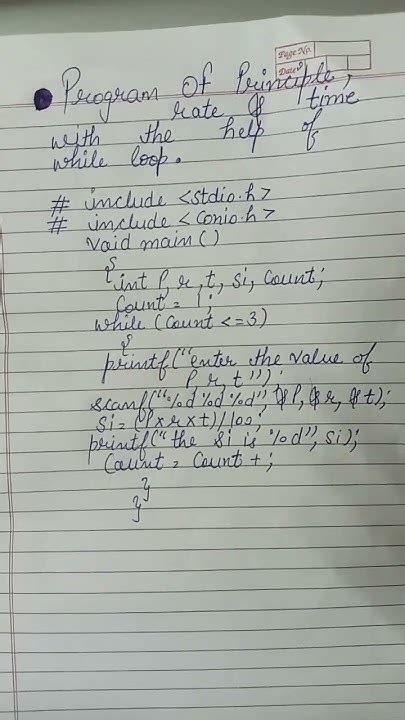 Page No.
Date
Program Of Principle,
rate & time
with the help of
while loop.
# include <stdio.h>
# include <conio.h>
void main()
{
int P, r, t, si, Count;
Count = 1;
while (Count <=3)
{
printf("enter the value of
P, r, t");
scanf("%d%d%d", &P, &r, &t);
Si = (P×r×t)/100;
printf("the Si is %d", si);
Count = Count +;
}
}